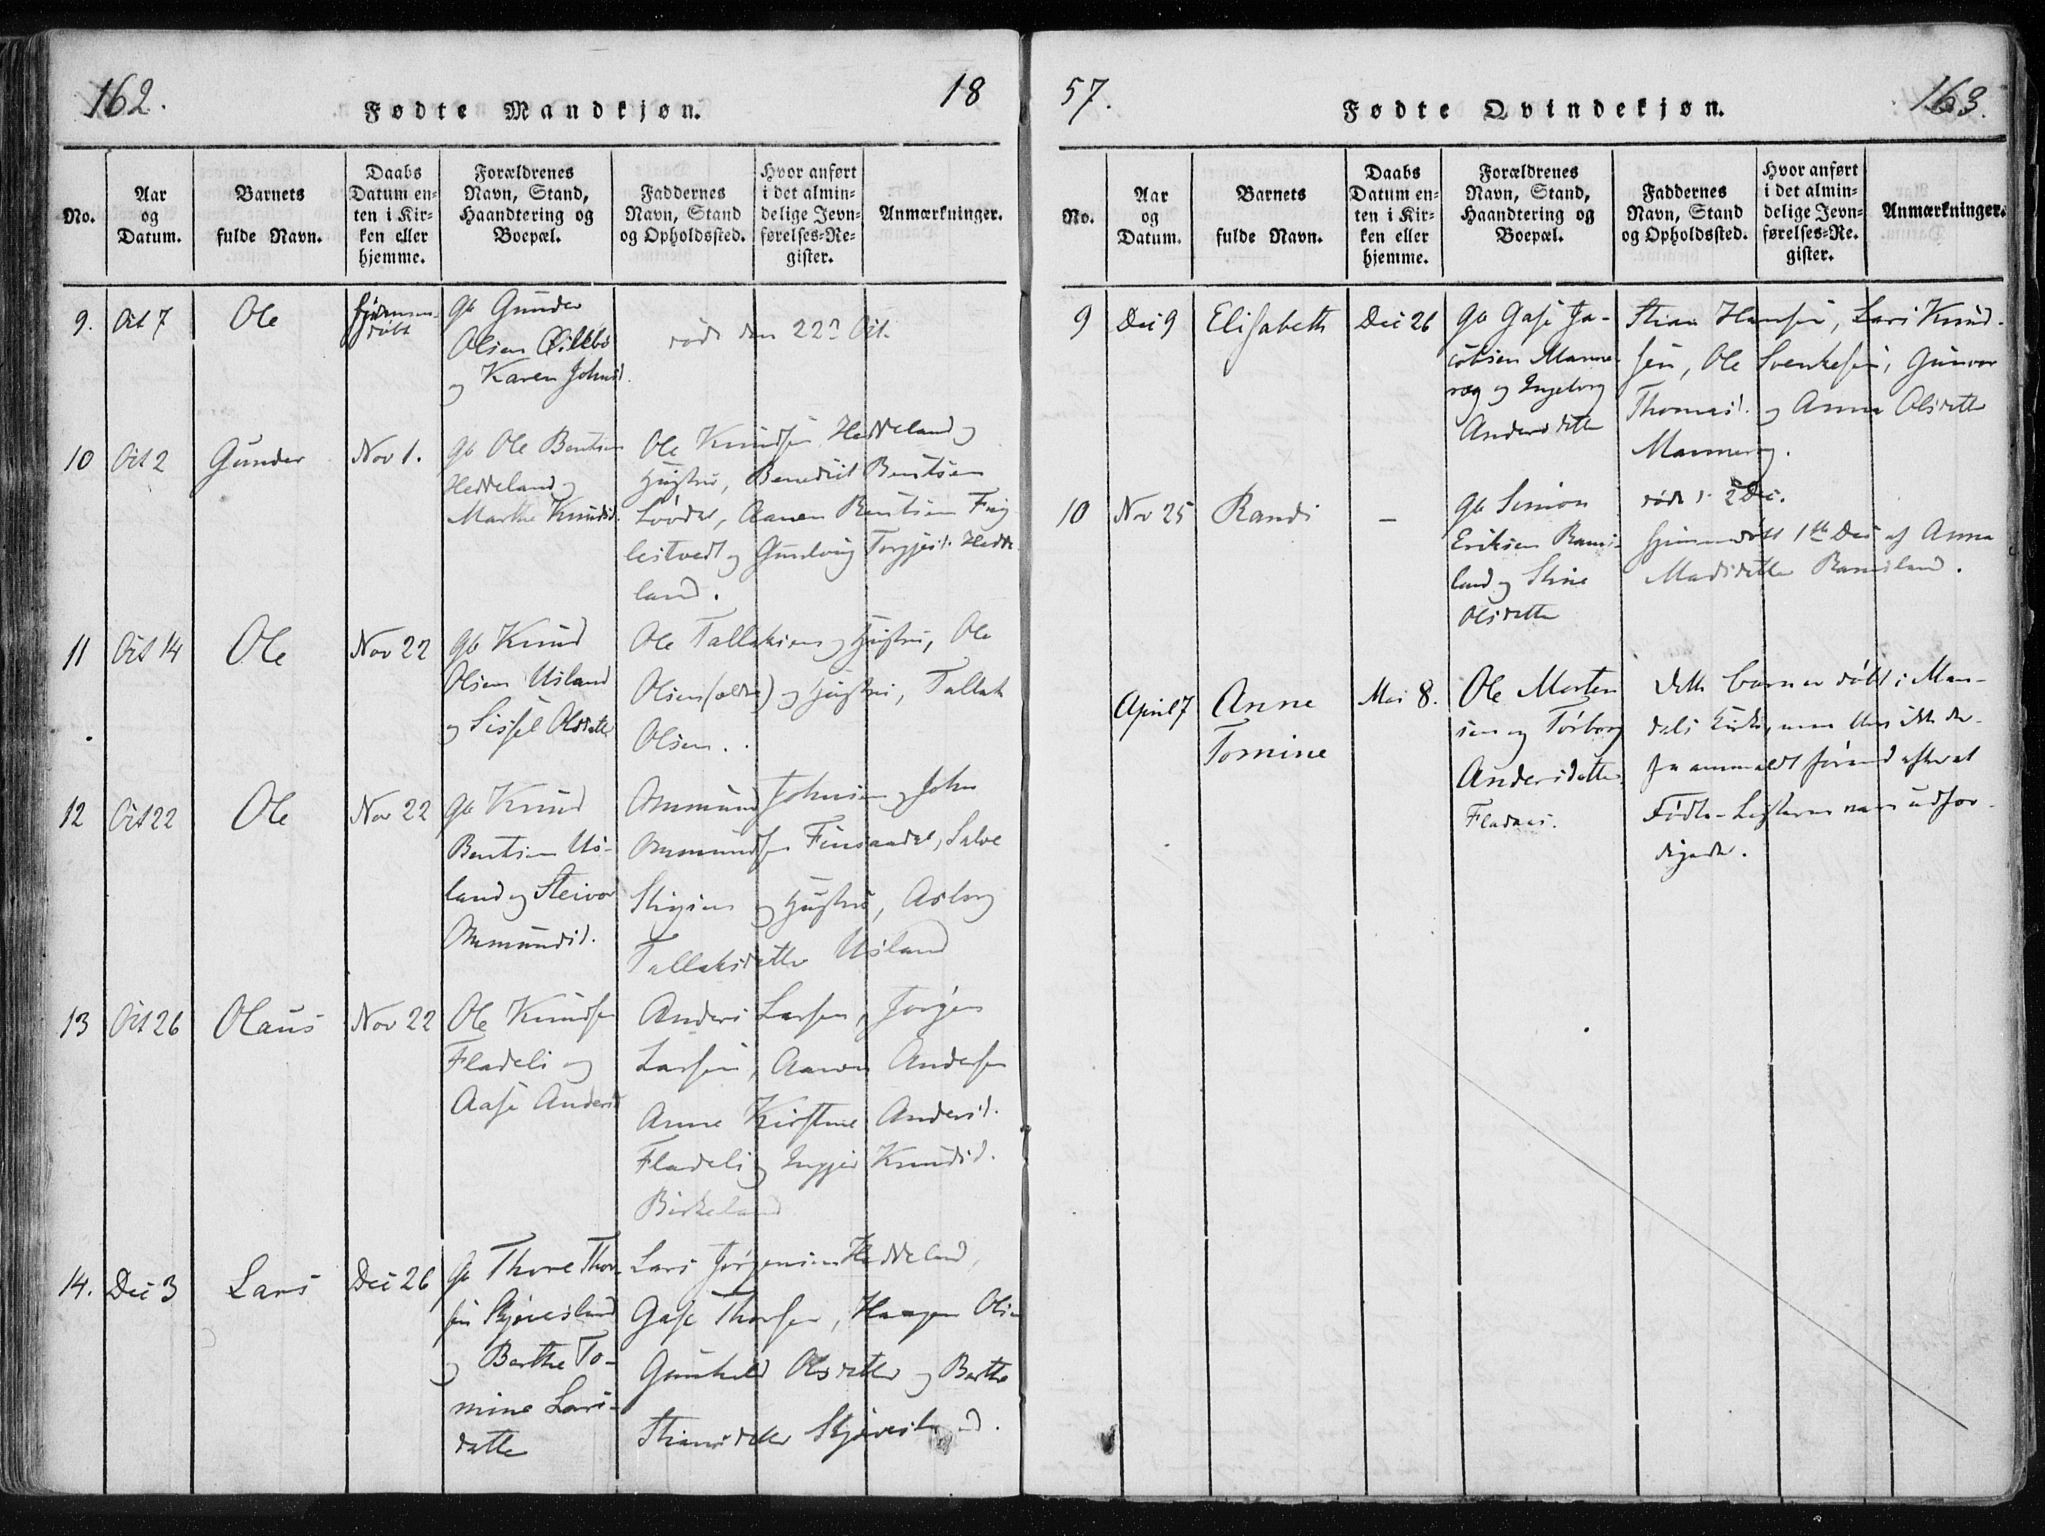 162.
18
Fødte Mandkjøn.
No.
Aar og Datum.
Barnets fulde Navn.
Daabs Datum enten i Kirken eller hjemme.
Forældrenes Navn, Stand, Haandtering og Boepæl.
Faddernes Navn, Stand og Opholdssted.
Hvor anført i det almindelige Jevnførelses-Register.
Anmærkninger.
9. Oct 7 Ole
Gb Gunder
Olsen
og Karen Johnsd.
død den 22de Oct.
10 Oct 2 Gunder Nov 1.
Gb Ole Bentsen
Heddeland og
Marthe Knudsd.
Ole Knudsen Heddeland og
Hustru, Benedict Bentsen
Aanen Bentsen
og Gundvig Torgjersd. Hedde-
land.
11 Oct 14 Ole Nov 22
Gb Knud
Olsen Usland
og Sissel Olsdatter
Ole Tallaksen og Hustru, Ole
Olsen (ældre) og Hustru, Tallak
Olsen.
12 Oct 22 Ole Nov 22
Gb Knud
Bentsen Us-
land og Steivor
Ommundsd.
Ommund Johnsen og John
Ommundsen Finsaadal, Salve
Stigsen og Hustru, Asborg
Tallaksdatter Usland
13 Oct 26 Olaus Nov 22
Ole Knudsen
Fladeli og
Aase Andersd
Anders Larsen, Jørgen
Larsen, Aanen Andersen
Anne Kirstine Andersd.
Fladeli og Ingjer Knudsd.
Birkeland
14. Dec 3 Lars Dec 26
Gb Thore Thor-
sen Skjøvesland
og Berthe To-
mine Lars-
datter
Lars Jørgensen Heddeland,
Gase Thorsen, Haagen Olsen
Gunhild Olsdatter og Berthe
Stiansdatter Skjøvesland.
57.
163.
Fødte Qvindekjøn.
No.
Aar og Datum.
Barnets fulde Navn.
Daabs Datum enten i Kirken eller hjemme.
Forældrenes Navn, Stand, Haandtering og Boepæl.
Faddernes Navn, Stand og Opholdssted.
Hvor anført i det almindelige Jevnførelses-Register.
Anmærkninger.
9 Dec 9 Elisabeth Dec 26
Gb Gase Ja-
cobsen Manne-
røg og Ingeborg
Andersdatter
Stian Hansen, Lars Knud-
sen, Ole Svenkesen, Gunvor
Thomasd. og Anna Olsdatter
Mannerøg.
10 Nov 25 Randi —
Gb Simon
Eriksen Rams-
land og Stine
Olsdatter
død d. 2 Dec.
hjemmedøbt 1ste Dec af Anna
Madsdatter Ramsland.
April 7 Anne
Tomine
Mai 8.
Ole Morten-
sen og Torborg
Andersdatter
Fladaas.
Dette Barn er døbt i Man-
dals Kirke, men blev ikke der-
fra anmeldt førend efterat
Fødte-Listerne vare udfær-
digede.